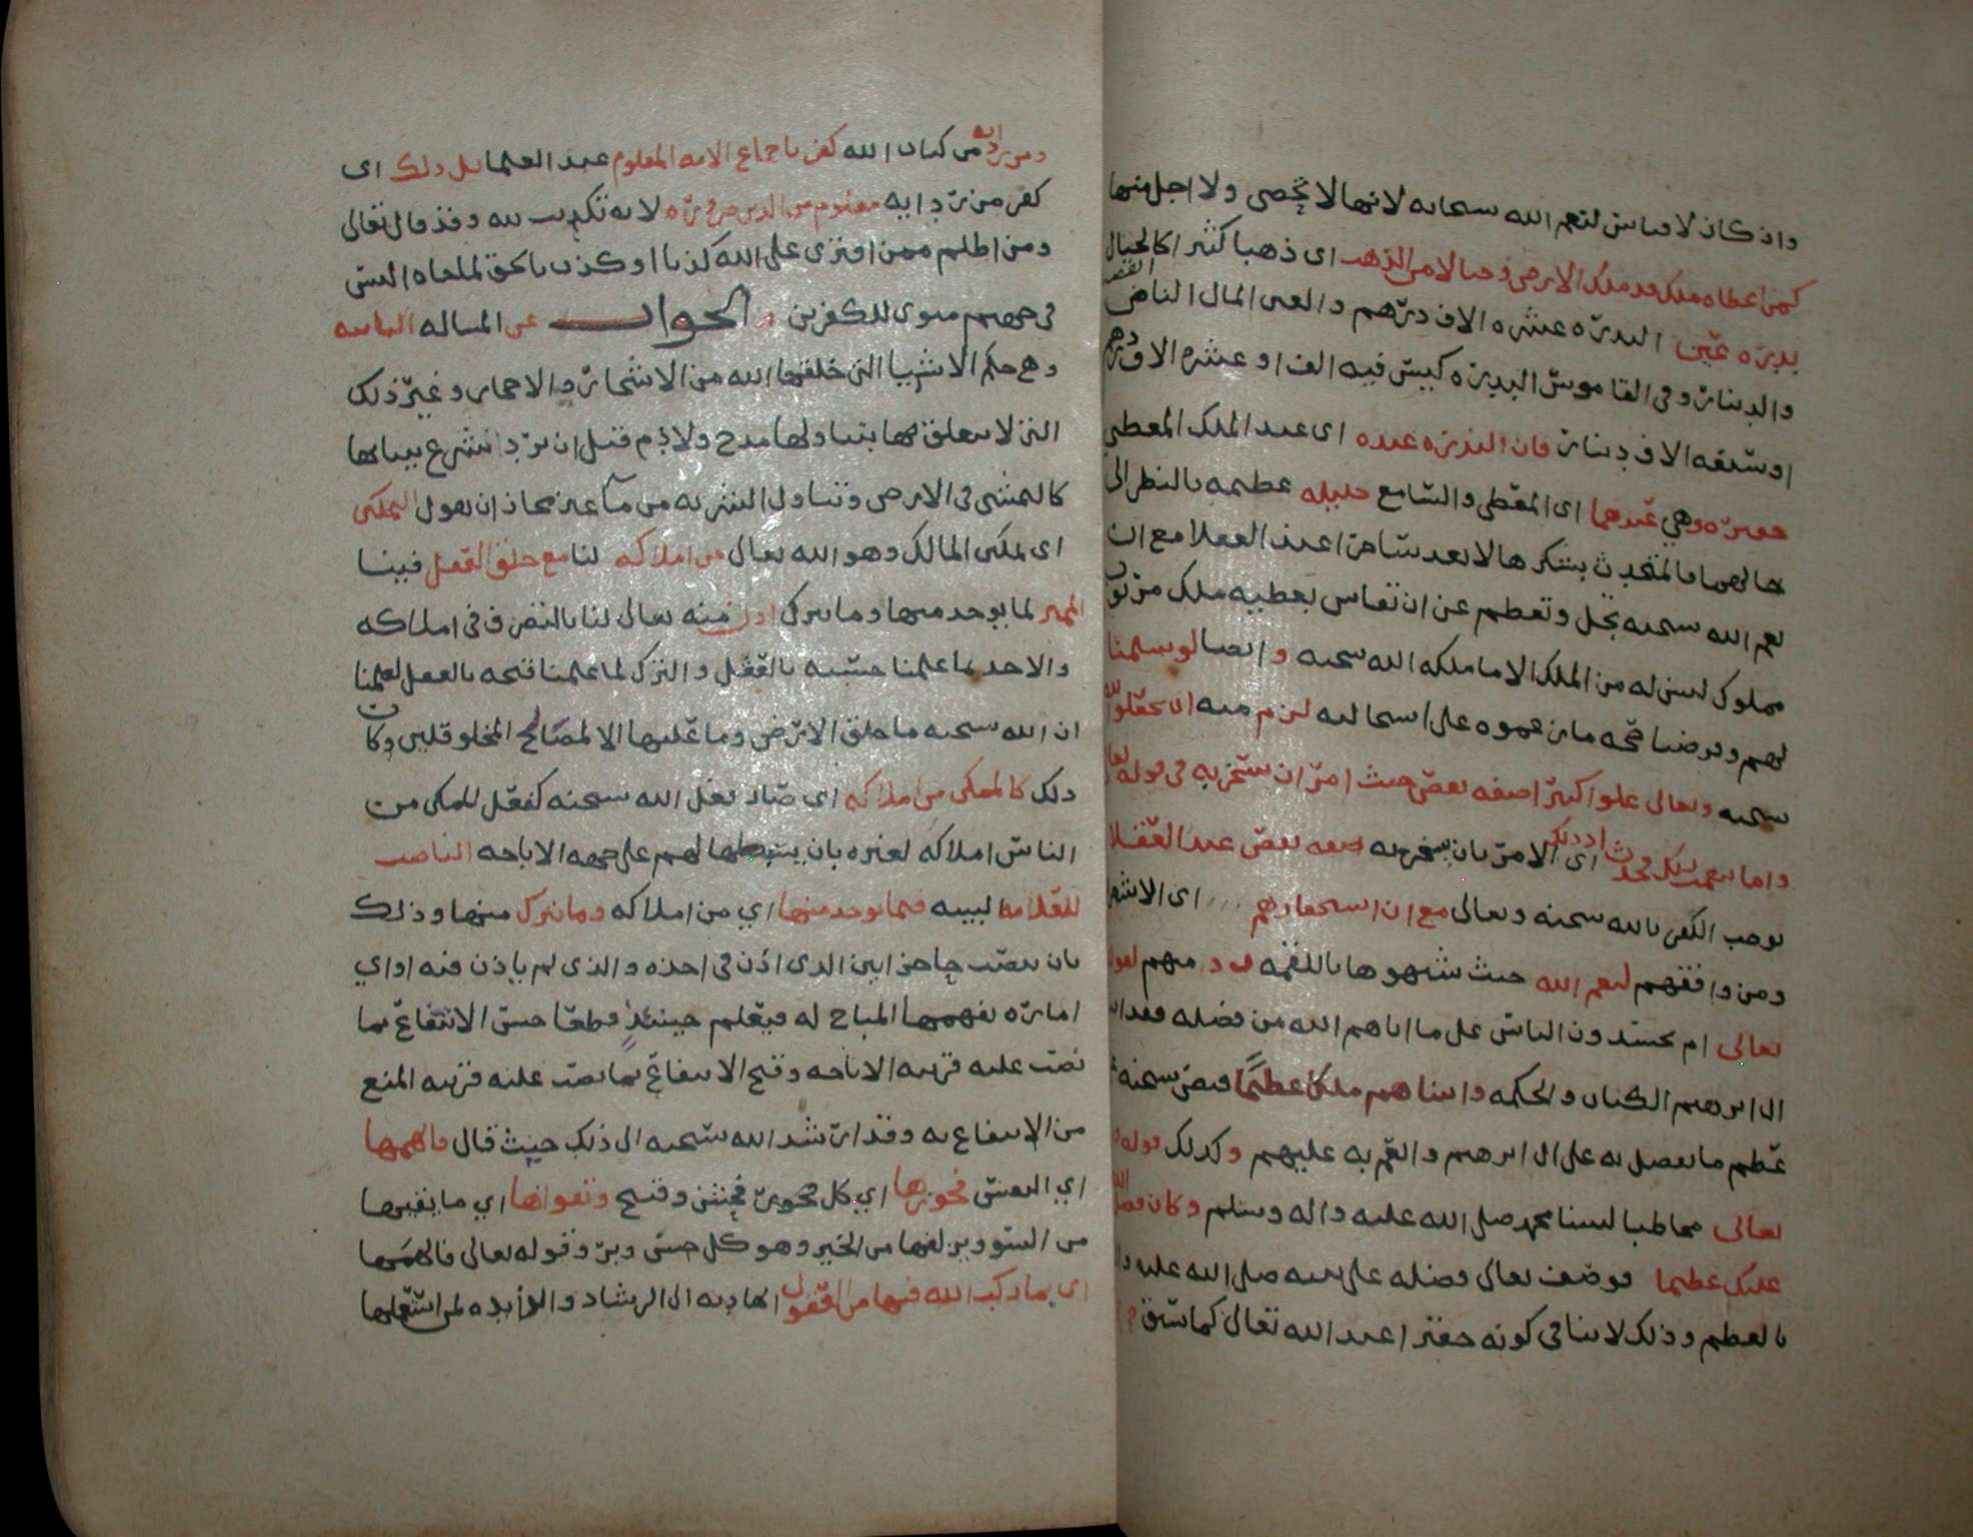 واذ كان لا قياس لنعم الله سبحانه لانها لا تحصى ولا اجل منها
كمن اعطاه ملك قد ملك الارض وحبالا من الذهب اى ذهبا كثيرا كالجبال
بدرة عين البدره عشره الاف درهم والعين المال الناض
والدينار وفى القاموس البدره كيس فيه الف او عشره الاف درهم
او سبعه الاف دينار فان البدره عنده اى عند الملك المعطي
حقيره وهي عندهما اى المعطى والسامع جليله عظيمه بالنظر الى
حالهما فالمتحدث بشكرها لا يعد ساخرا عند العقلا مع ان
نعم الله سبحنه تجل وتعظم عن ان تقاس بعطيه ملك مرزوق
مملوك ليس له من الملك الا ما ملكه الله سبحنه و ايضا لو سلمنا
لهم وفرضنا صحه ما زعموه على استحالته لزم منه ان يجعلوا لله
سبحنه وتعالى علوا كبيرا صفه نقص حيث امر ان يسخر به فى قوله تعالى
واما بنعمة ربك فحدث اذ ذلك اى الامر بان يسخر به صفه نقص عند العقلا
توجب الكفر بالله سبحنه وتعالى مع ان استحقارهم اى
ومن وافقهم لنعم الله حيث شبهوها باللقمه منهم
تعالى ام يحسدون الناس على ما اتاهم الله من فضله فقد اتينا
ال ابرهيم الكتاب والحكمه واتيناهم ملكا عظيما سبحنه
عظم ما تفضل به على ال ابرهيم وانعم به عليهم وكذلك قوله
تعالى مخاطبا لنبينا محمد صلى الله عليه واله وسلم وكان فضل الله
عليك عظيما فوصف تعالى فضله على نبيه صلى الله عليه
بالعظم وذلك لا ينافى كونه حقيرا عند الله تعالى كما سبق
ومن رد ايه من كتاب الله كفر باجماع الامه المعلوم عند العلما بل ذلك اى
كفر من رد ايه معلوم من الدين ضروره لانه تكذيب لله وقد قال تعالى
ومن اظلم ممن افترى على الله كذبا او كذب بالحق لما جاه اليس
فى جهنم مثوى للكفرين و الجواب عن المساله الثانيه
وهى حكم الاشيا التى خلقها الله من الاشجار والاحجار وغير ذلك
التى لا يتعلق بها بتناولها مدح ولا ذم قبل ان يرد الشرع ببيانها
كالتمشى فى الارض وتناول الشربه من مآ غير محاز ان نقول التمكين
اى تمكين المالك وهو الله تعالى من املاكه لنا مع خلق العقل فينا
المميز لما يوخذ منها وما يترك اذن منه تعالى لنا بالتصرف فى املاكه
والاخذ لما علمنا حسنه بالعقل والترك لما علمنا قبحه بالعقل لعلمنا
ان الله سبحنه ما خلق الارض وما عليها الا لمصالح المخلوقين وكان
ذلك كالممكن من املاكه اى صار فعل الله سبحنه كفعل الممكن من
الناس املاكه لغيره بان يبسطها لهم على جهه الاباحه الناصب
للعلامه البينه فيما يوخذ منها اي من املاكه وما يترك منها وذلك
بان ينصب حاجزا بين الذى اذن فى اخذه والذى لم ياذن فيه او اي
اماره يفهمها المباح له فيعلم حينئذ قطعا حسن الانتفاع بما
نصب عليه قرينه الاباحه وقبح الانتفاع بما نصب عليه قرينه المنع
من الانتفاع به وقد ارشد الله سبحنه الى ذلك حيث قال فالهمها
اي النفس فجورها اي كل فجور فحش وقبح وتقواها اي ما يقيها
من السو ويزلفها من الخير وهو كل حسن وبر وقوله تعالى فالهمها
اى بما ركب الله فيها من العقول الهاديه الى الرشاد والوأيده لمن استعملها